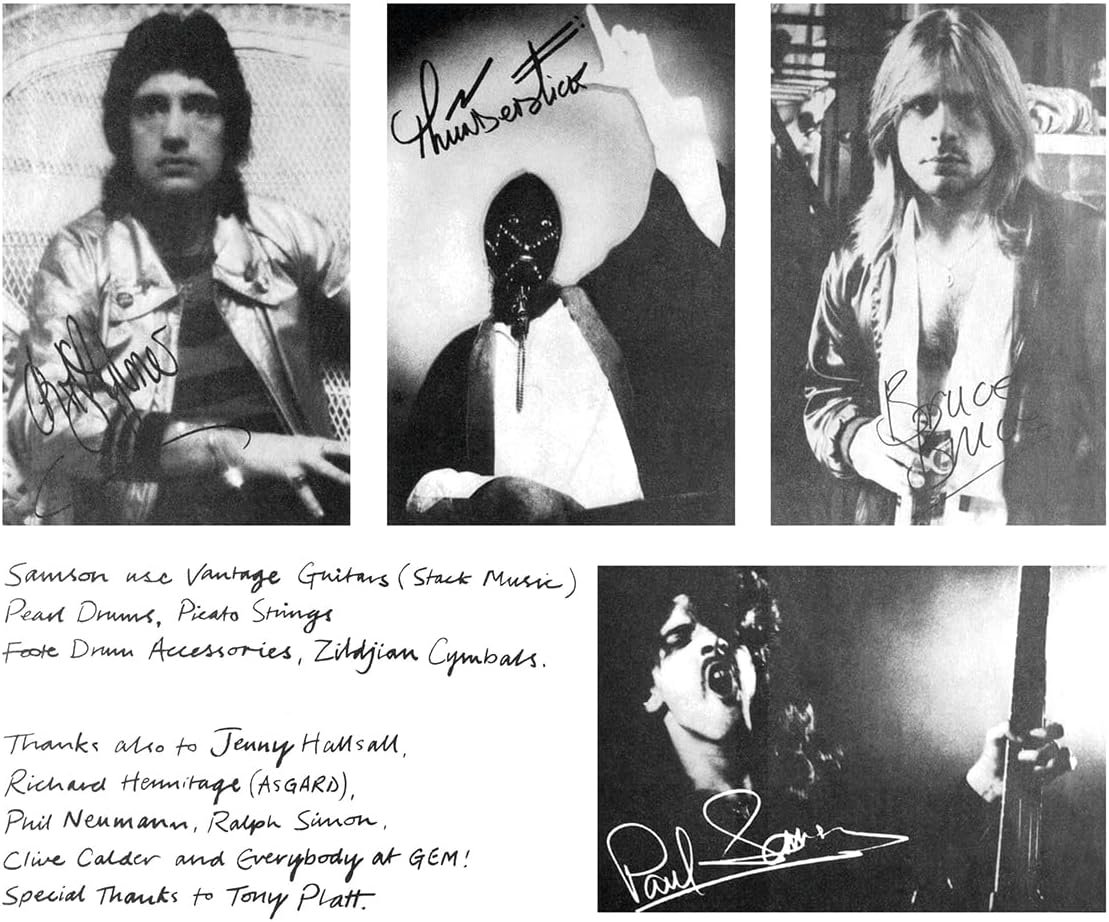 Thunderstick
Bruce
Bruce
Samson use Vantage Guitars (Stack Music)
Pearl Drums, Picato Strings
Foote Drum Accessories, Zildjian Cymbals.
Thanks also to Jenny Hallsall,
Richard Hermitage (ASGARD),
Phil Neumann, Ralph Simon,
Clive Calder and Everybody at GEM!
Special Thanks to Tony Platt.
Paul Samson